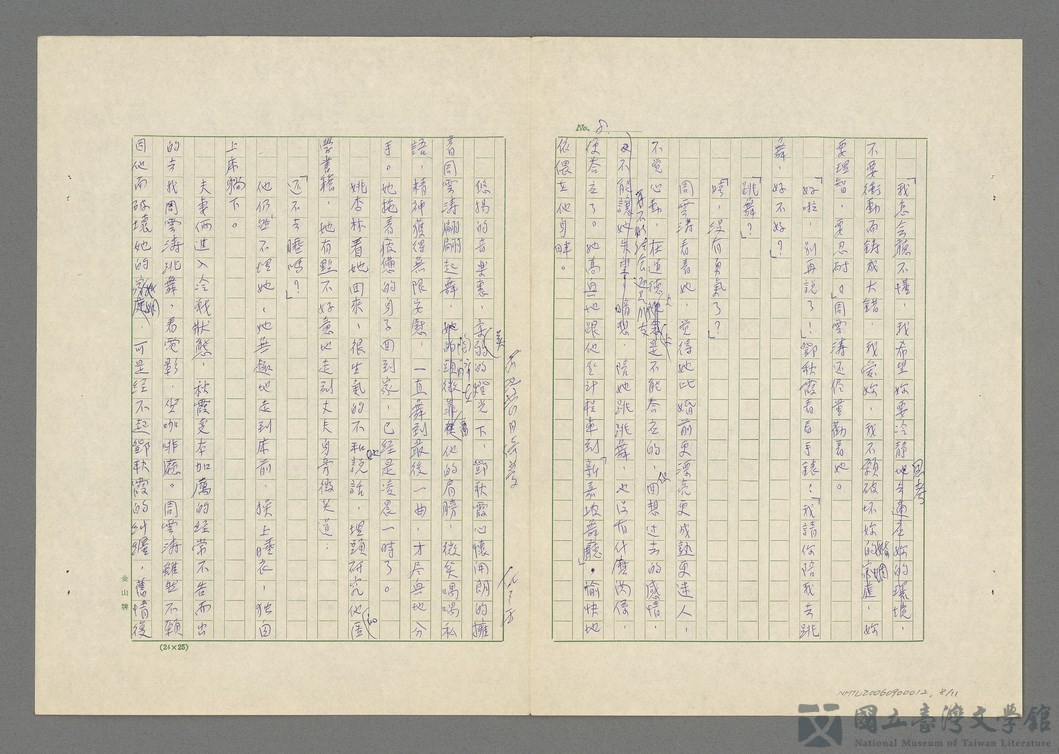 No. 8.
「我怎會聽不懂，我希望妳要冷靜地考慮在妳的環境，
不要衝動而鑄成大錯，我愛妳，我不願破坏妳的婚姻，妳
要理智，要忍耐。」周雲濤还尽量勸着她。
「好啦，別再說了！」鄧秋霞看看手錶：「我請你陪我去跳
舞，好不好？」
「跳舞？」
「嗯，沒有勇氣了？」
周雲濤看着她，覺得她比婚前更漂亮更成熟更迷人，
不覺心動，在道德上是不能答应的，但回想过去的感情，
又不能讓她失望，暗想，陪她跳跳舞，也沒有什麼関係，
便答应了。她高興地跟他坐計程車到「新嘉坡舞廳」，愉快地
依偎在他身畔。
悠揚的音樂裏，柔美的燈光下，鄧秋霞心懷開朗的擁
着周雲濤翩翩起舞，她的頭微靠在他的肩膀，微笑喁喁私
語，精神獲得無限安慰，一直舞到最後一曲，才尽興地分
手。她拖着疲憊的身子回到家，已經是凌晨一時了。
姚李林看她回來，很生氣的不和她說話，埋頭研究他的医
學書籍，她有點不好意思地走到丈夫身旁微笑道：
「还不去睡嗎？」
他仍然不理她，她無趣地走到床前，換上睡衣，独自
上床躺下。
夫妻俩進入冷戰狀態，秋霞变本加厲的經常不告而出
的去找周雲濤跳舞，看電影，坐咖啡廳。周雲濤雖然不願
因他而破壞她的婚姻，可是經不起鄧秋霞的糾纏，舊情復
金山牌
(24×25)
NMTL20060900012, 8/11
國立臺灣文學館
National Museum of Taiwan Literature